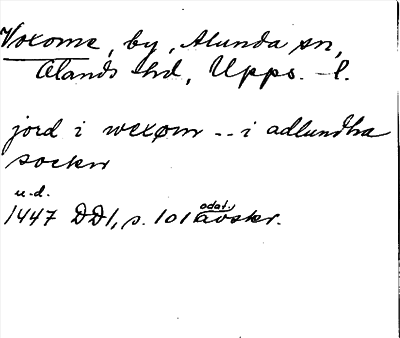 Voxome, by, Alunda sn,
Olands hd, Upps. l.
jord i wexøm -- i adlundha
sockn
u.d.
1447 DD1, s. 101 odat. avskr.